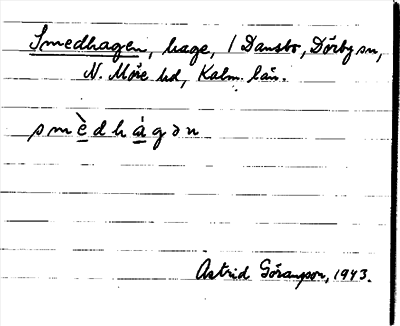 Smedhagen, hage, / Dansbo, Dörby sn,
N. Möre hd, Kalm. län.
smè̲dhá̲gən
Astrid Göransson, 1943.